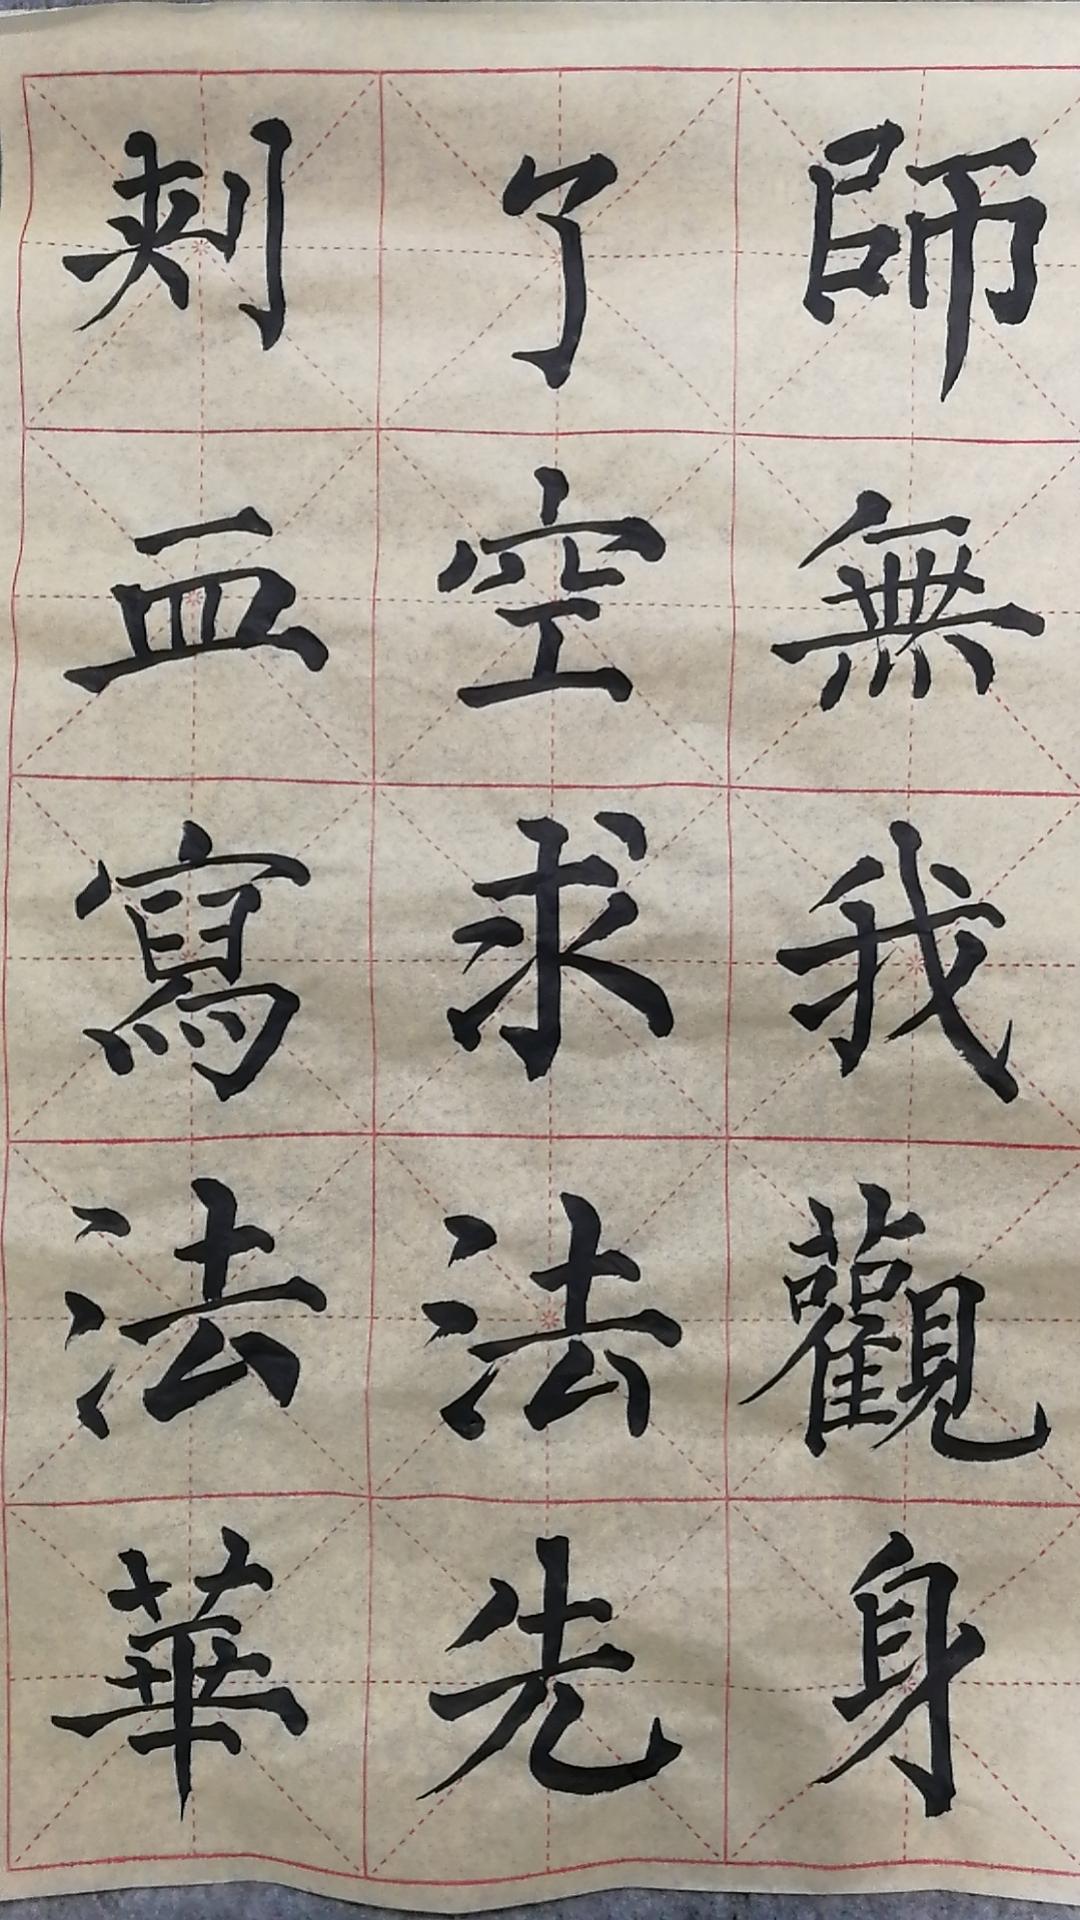 師無我觀身
了空求法先
刺血寫法華